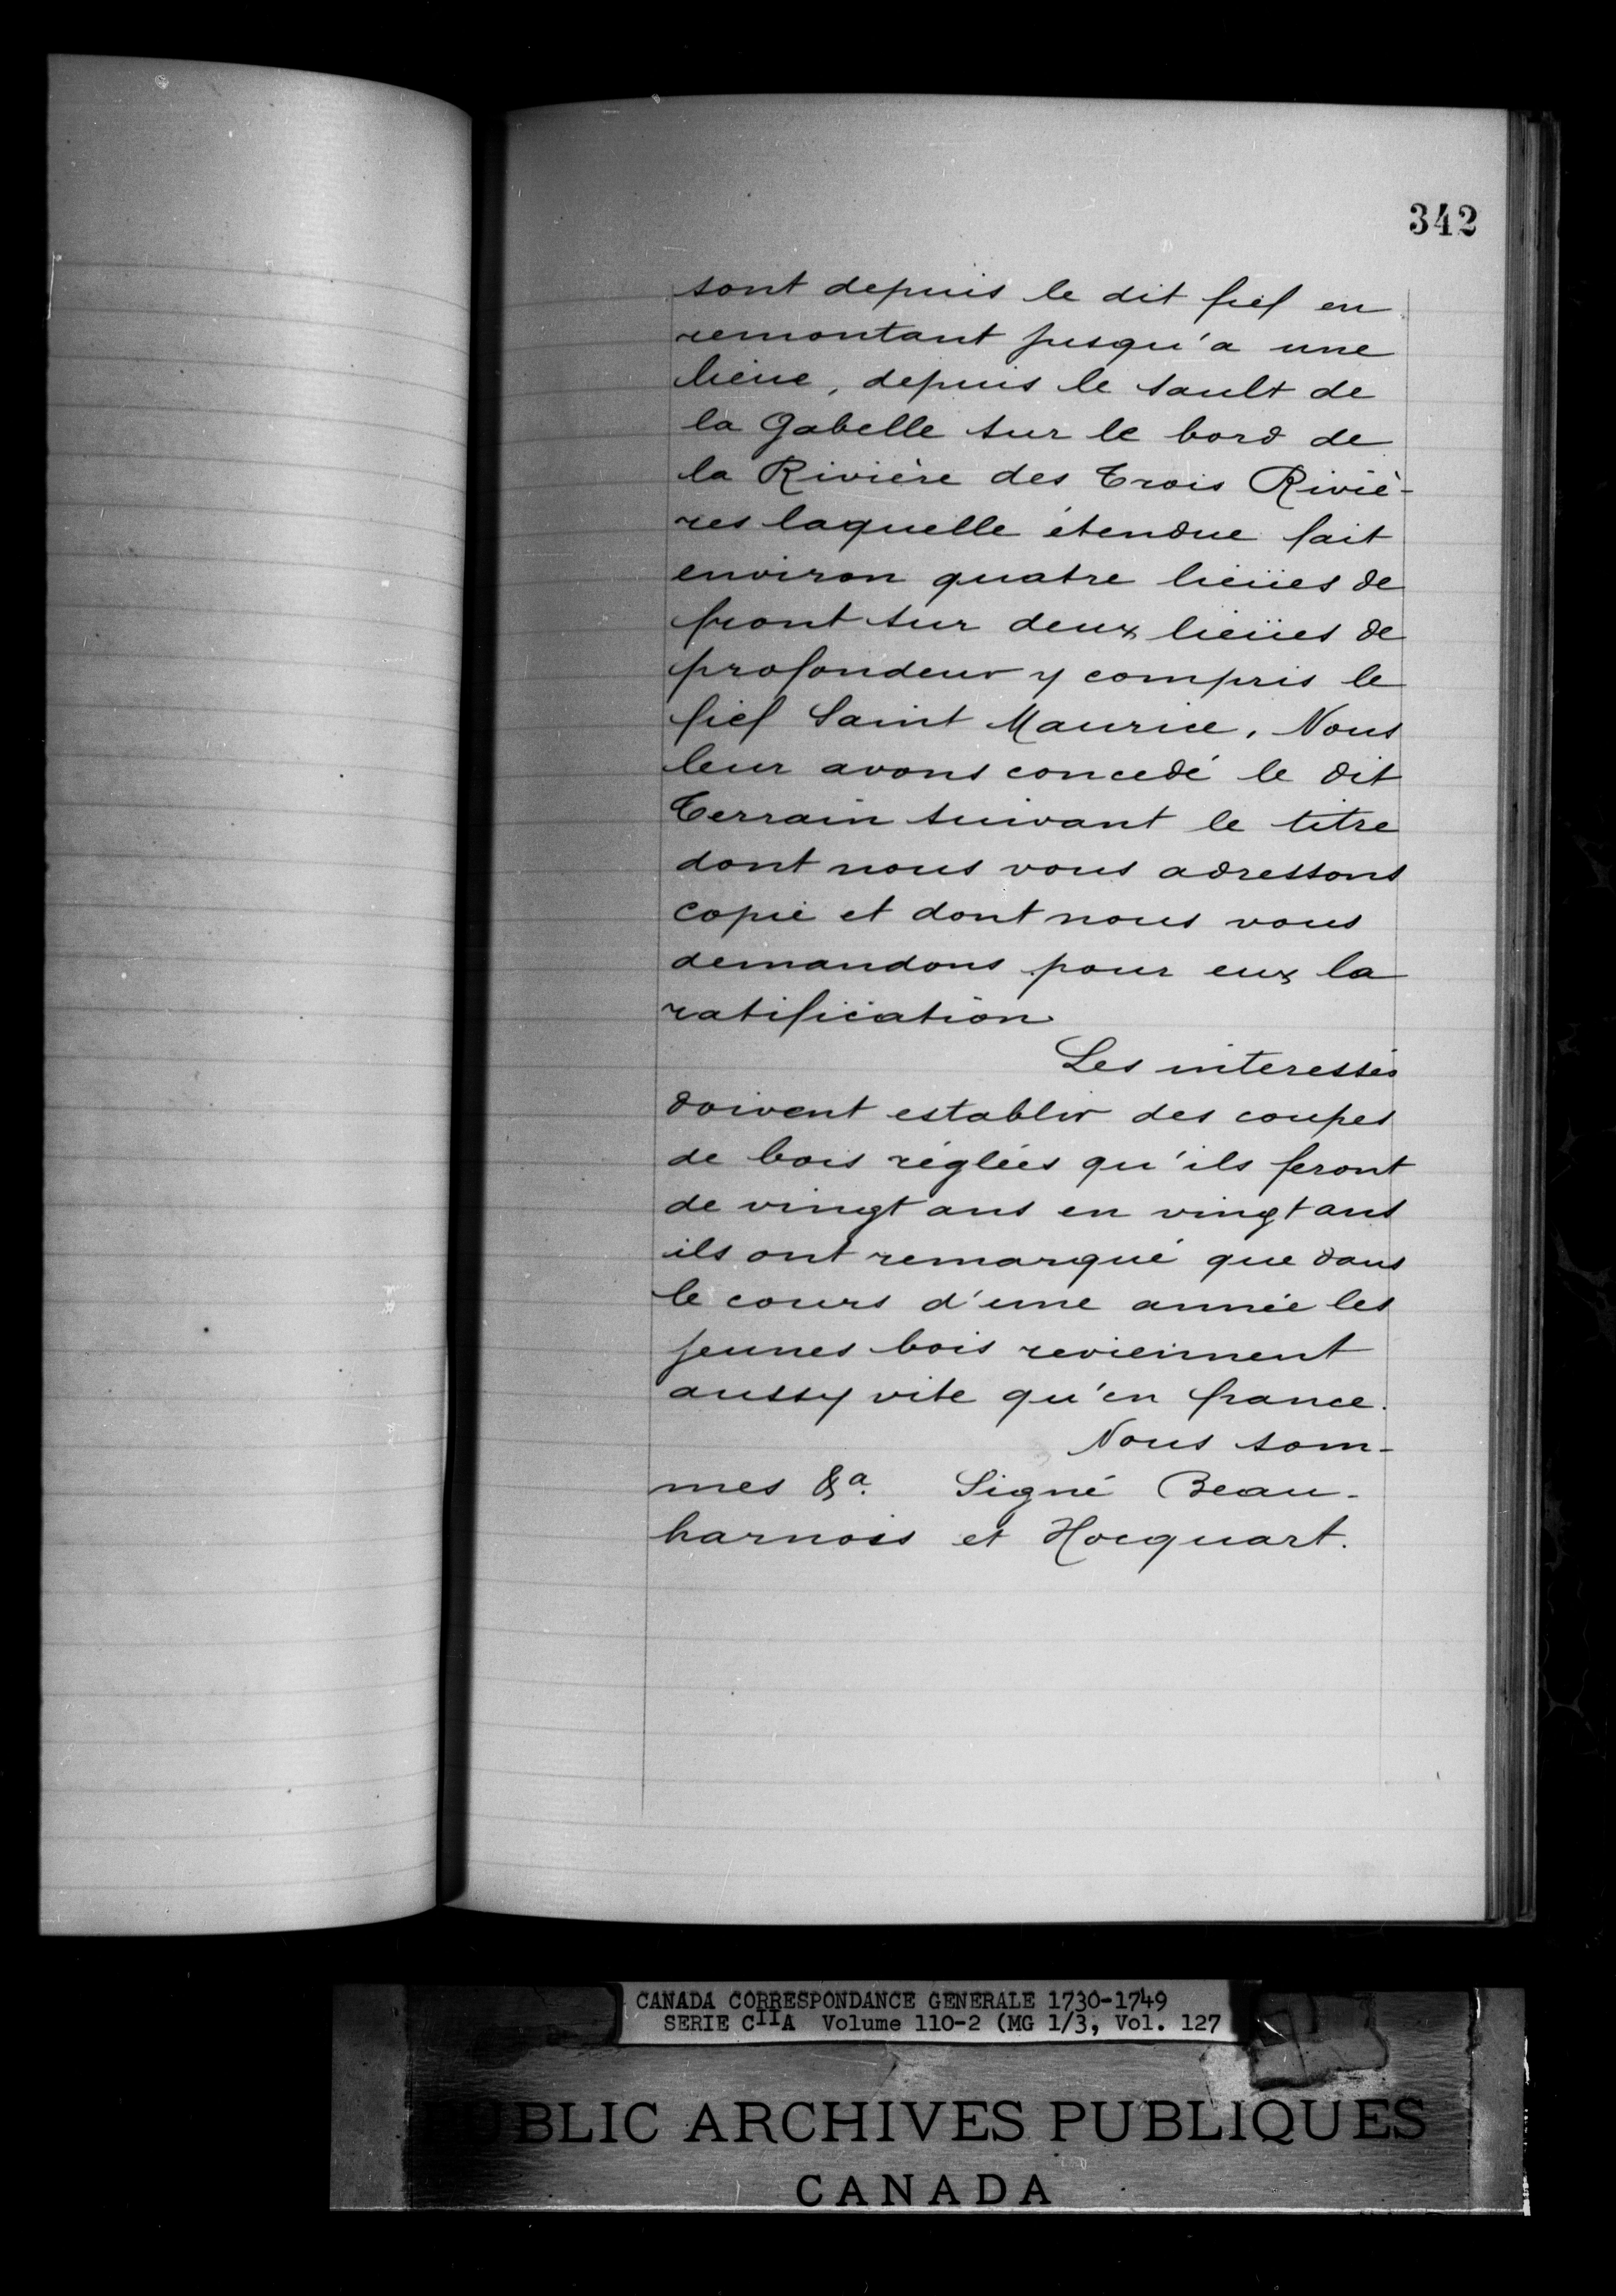 342
sont depuis le dit fief en
remontant jusqu'a une
lieüe, depuis le sault de
la Gabelle sur le bord de
la Rivière des Trois Riviè-
res laquelle étendue fait
environ quatre lieües de
front sur deux lieües de
profondeur y compris le
fief Saint Maurice. Nous
leur avons concedé le dit
Terrain suivant le titre
dont nous vous adressons
copie et dont nous vous
demandons pour eux la
ratification
Les interessés
doivent establir des coupes
de bois réglées qu'ils feront
de vingt ans en vingt ans
ils ont remarqué que dans
le cours d'une année les
jeunes bois reviennent
aussy vite qu'en france.
Nous som-
mes &a. Signé Beau-
harnois et Hocquart.
CANADA CORRESPONDANCE GENERALE 1730-1749
SERIE CIIA Volume 110-2 (MG 1/3, Vol. 127
PUBLIC ARCHIVES PUBLIQUES
CANADA